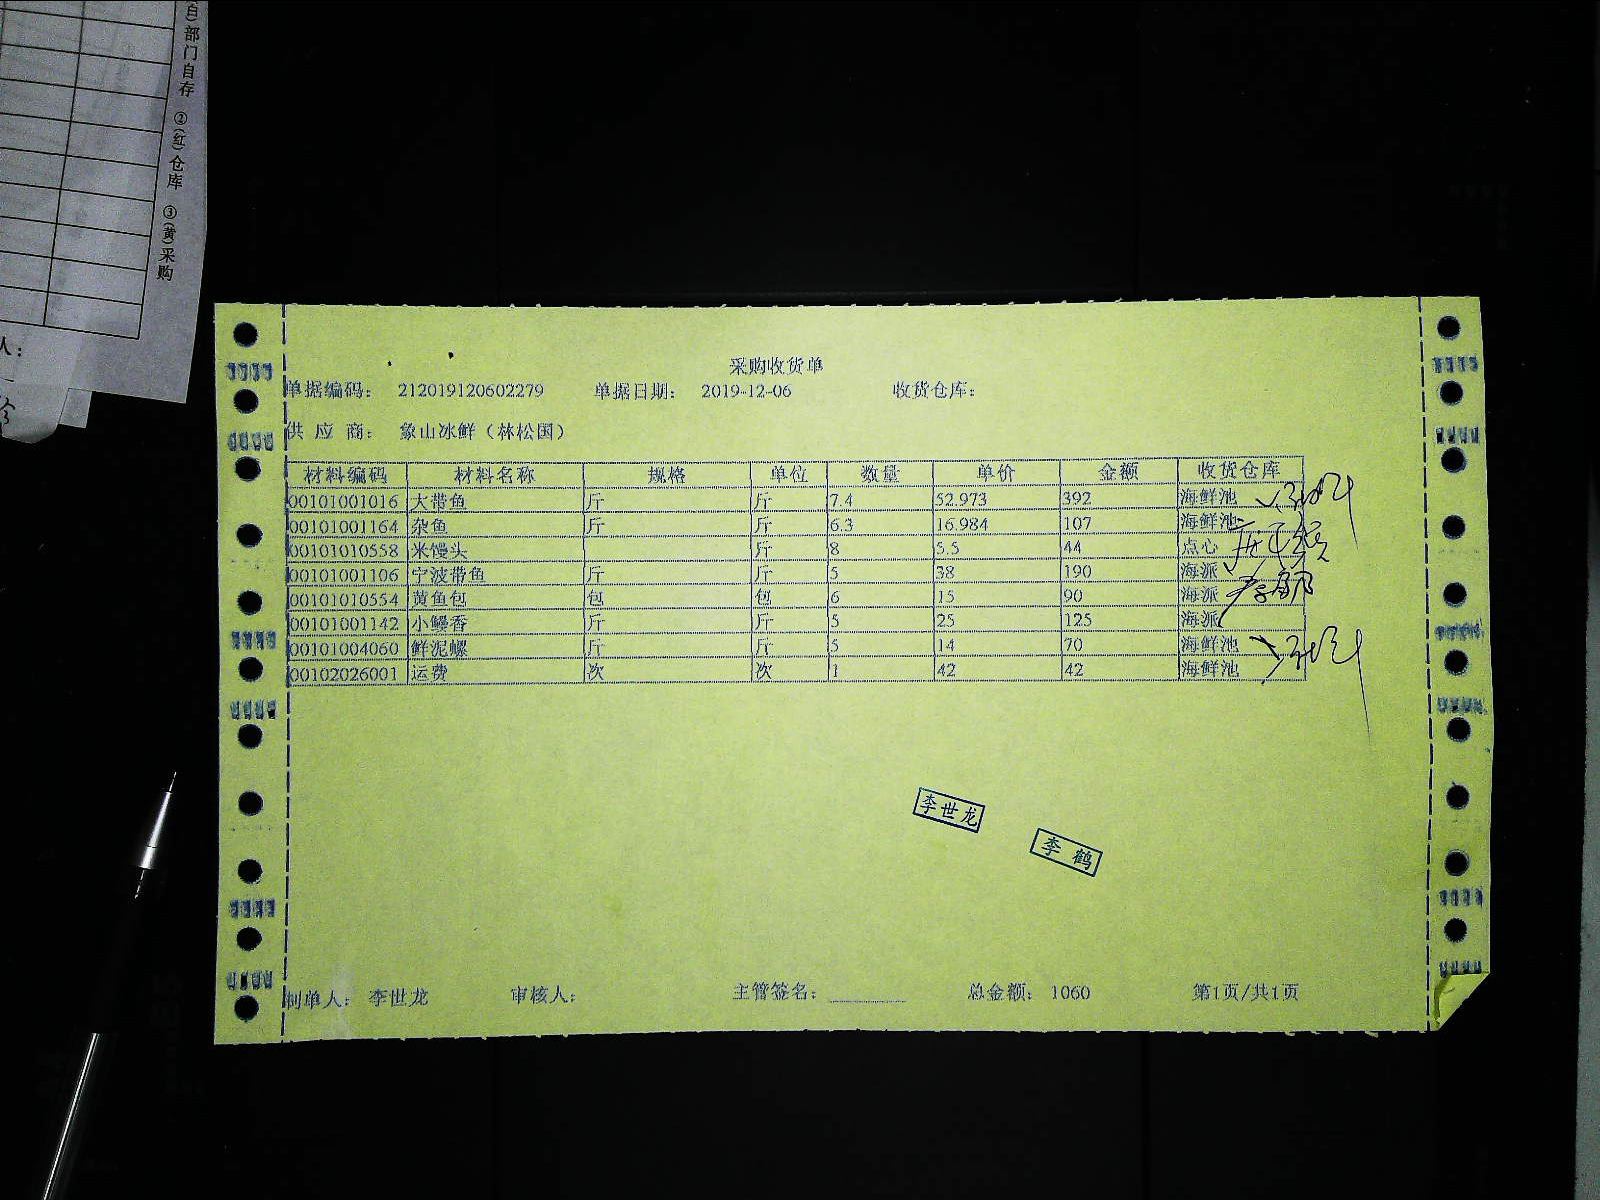 自)部门自存 ②(红)仓库 ③(黄)采购
人：
采购收货单
单据编码： 212019120602279 单据日期： 2019-12-06 收货仓库：
供 应 商： 象山冰鲜（林松国）
材料编码 材料名称 规格 单位 数量 单价 金额 收货仓库
00101001016 大带鱼 斤 斤 7.4 52.973 392 海鲜池
00101001164 杂鱼 斤 斤 6.3 16.984 107 海鲜池
00101010558 米馒头 斤 8 5.5 44 点心
00101001106 宁波带鱼 斤 斤 5 38 190 海派
00101010554 黄鱼包 包 包 6 15 90 海派
00101001142 小鳗香 斤 斤 5 25 125 海派
00101004060 鲜泥螺 斤 斤 5 14 70 海鲜池
00102026001 运费 次 次 1 42 42 海鲜池
李世龙
李鹤
制单人： 李世龙 审核人： 主管签名： 总金额： 1060 第1页/共1页